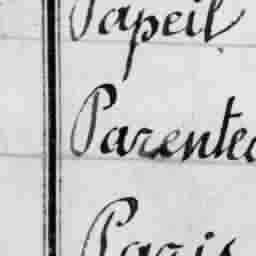 Papeil
Parentea
Paris